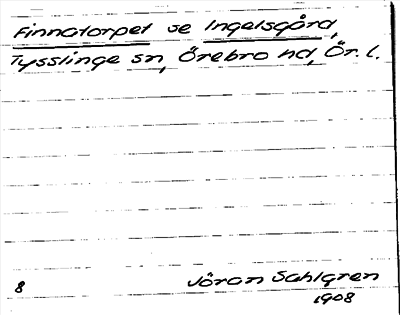 Finnatorpet se Ingelsgård,
Tysslinge sn, Örebro hd, Ör. l.
8 Jöran Sahlgren
1908